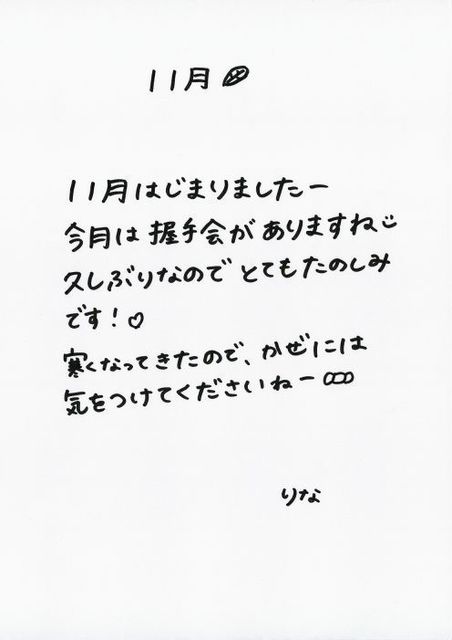 11月
11月はじまりましたー
今月は握手会がありますね
久しぶりなのでとてもたのしみ
です!♡
寒くなってきたので、かぜには
気をつけてくださいねー
りな